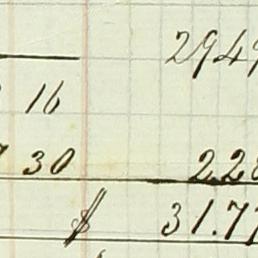 2949
16
30 228
$ 31.77